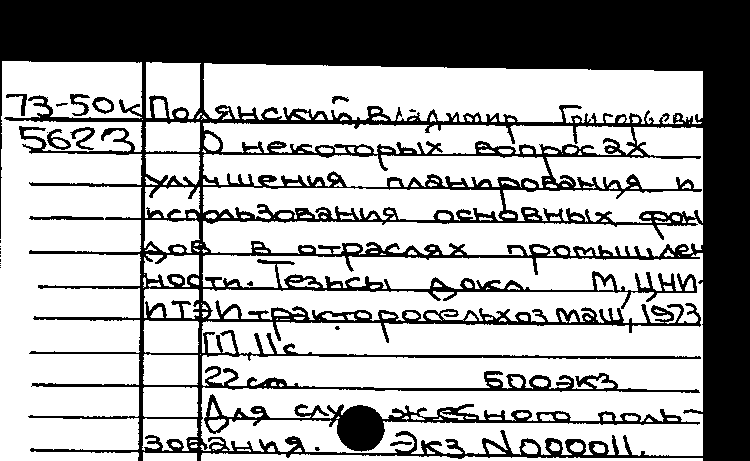 73-50к Полянский, Владимир Григорьевич
5623 О некоторых вопросах
улучшения планирования и
использования основных фон
дов в отраслях промышлен
ности. Тезисы докл. М., ЦНИ-
ИТЭИтракторосельхозмаш, 1973
[1], 11 с.
22 см. 500 экз
Для служебного поль-
зования. Экз. N000011.